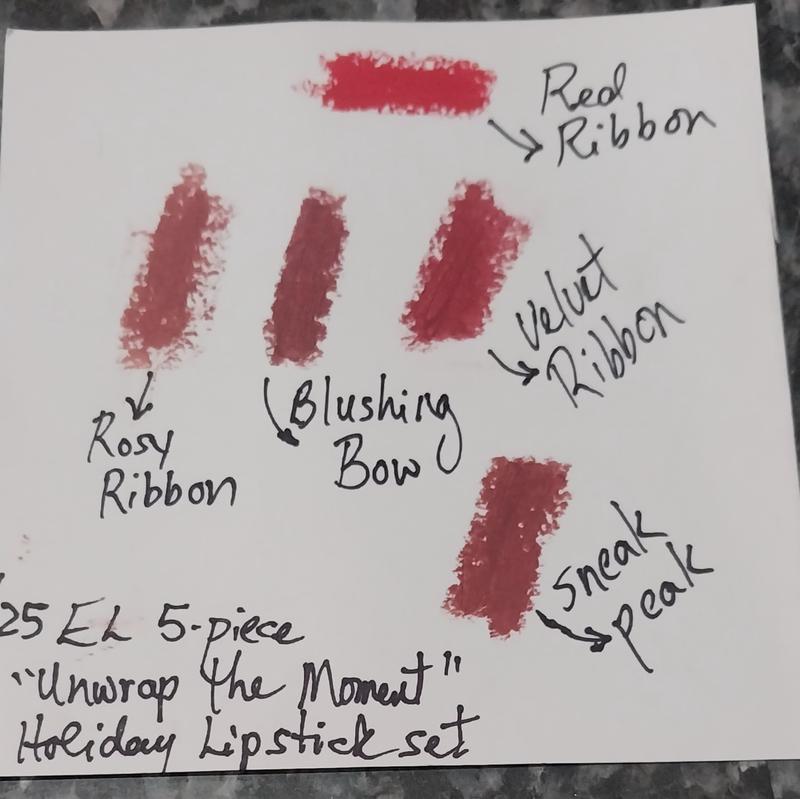 Red
Ribbon
Velvet
Ribbon
Rosy
Ribbon
Blushing
Bow
Sneak
peak
25 EL 5-piece
"Unwrap the Moment"
Holiday Lipstick set